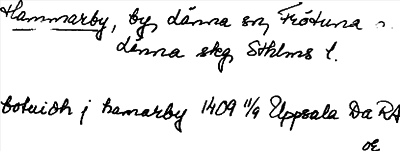 Hammarby, by, dänna sn, Frötuna
dänna skg, Sthlms l.
botuidh j hamarby 1409 11/9 Uppsala Da RA